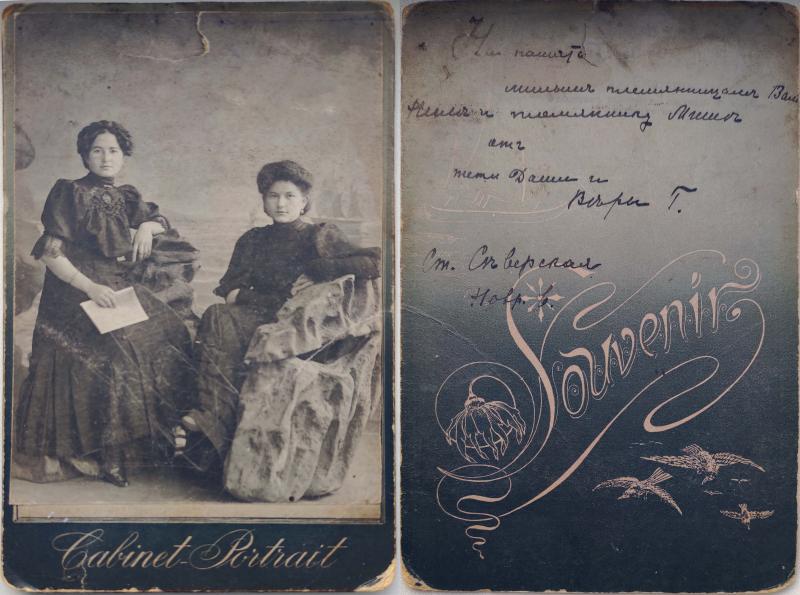 Cabinet-Portrait
На память
милымъ племянницамъ Вали
и племяннику Мишѣ
отъ
тети Даши и
Вѣры Г.
Ст. Сѣверская
Souvenir